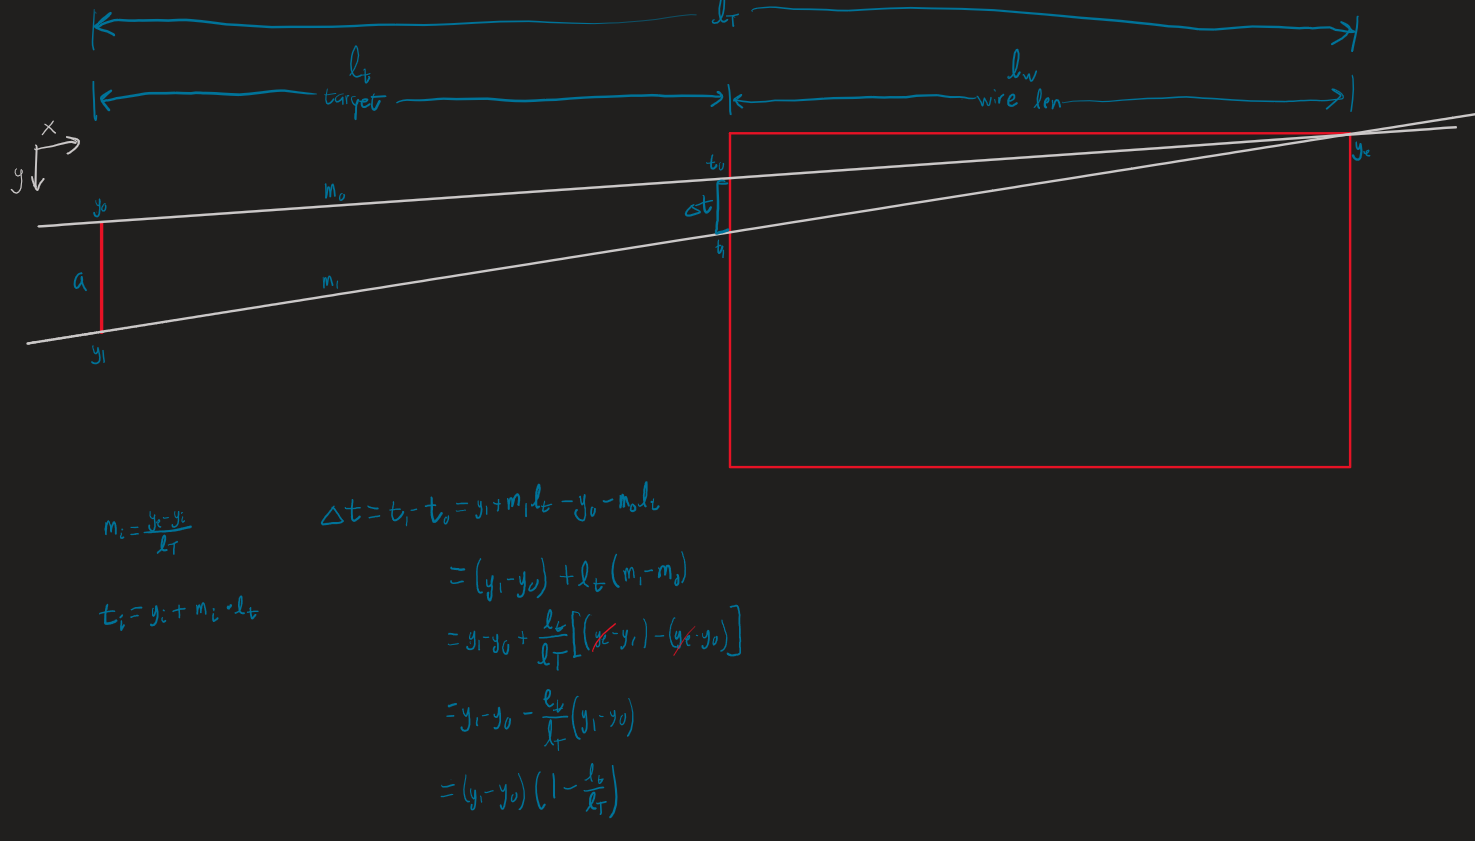 l_T
l_t
target
l_w
wire len
x
y
y_e
t_0
m_0
y_0
Δt
t_1
a
m_1
y_1
m_i = (y_e - y_i) / l_T
t_i = y_i + m_i · l_t
Δt = t_1 - t_0 = y_1 + m_1 l_t - y_0 - m_0 l_t
= (y_1 - y_0) + l_t (m_1 - m_0)
= y_1 - y_0 + l_t / l_T [(y_e - y_1) - (y_e - y_0)]
= y_1 - y_0 - l_t / l_T (y_1 - y_0)
= (y_1 - y_0) (1 - l_t / l_T)